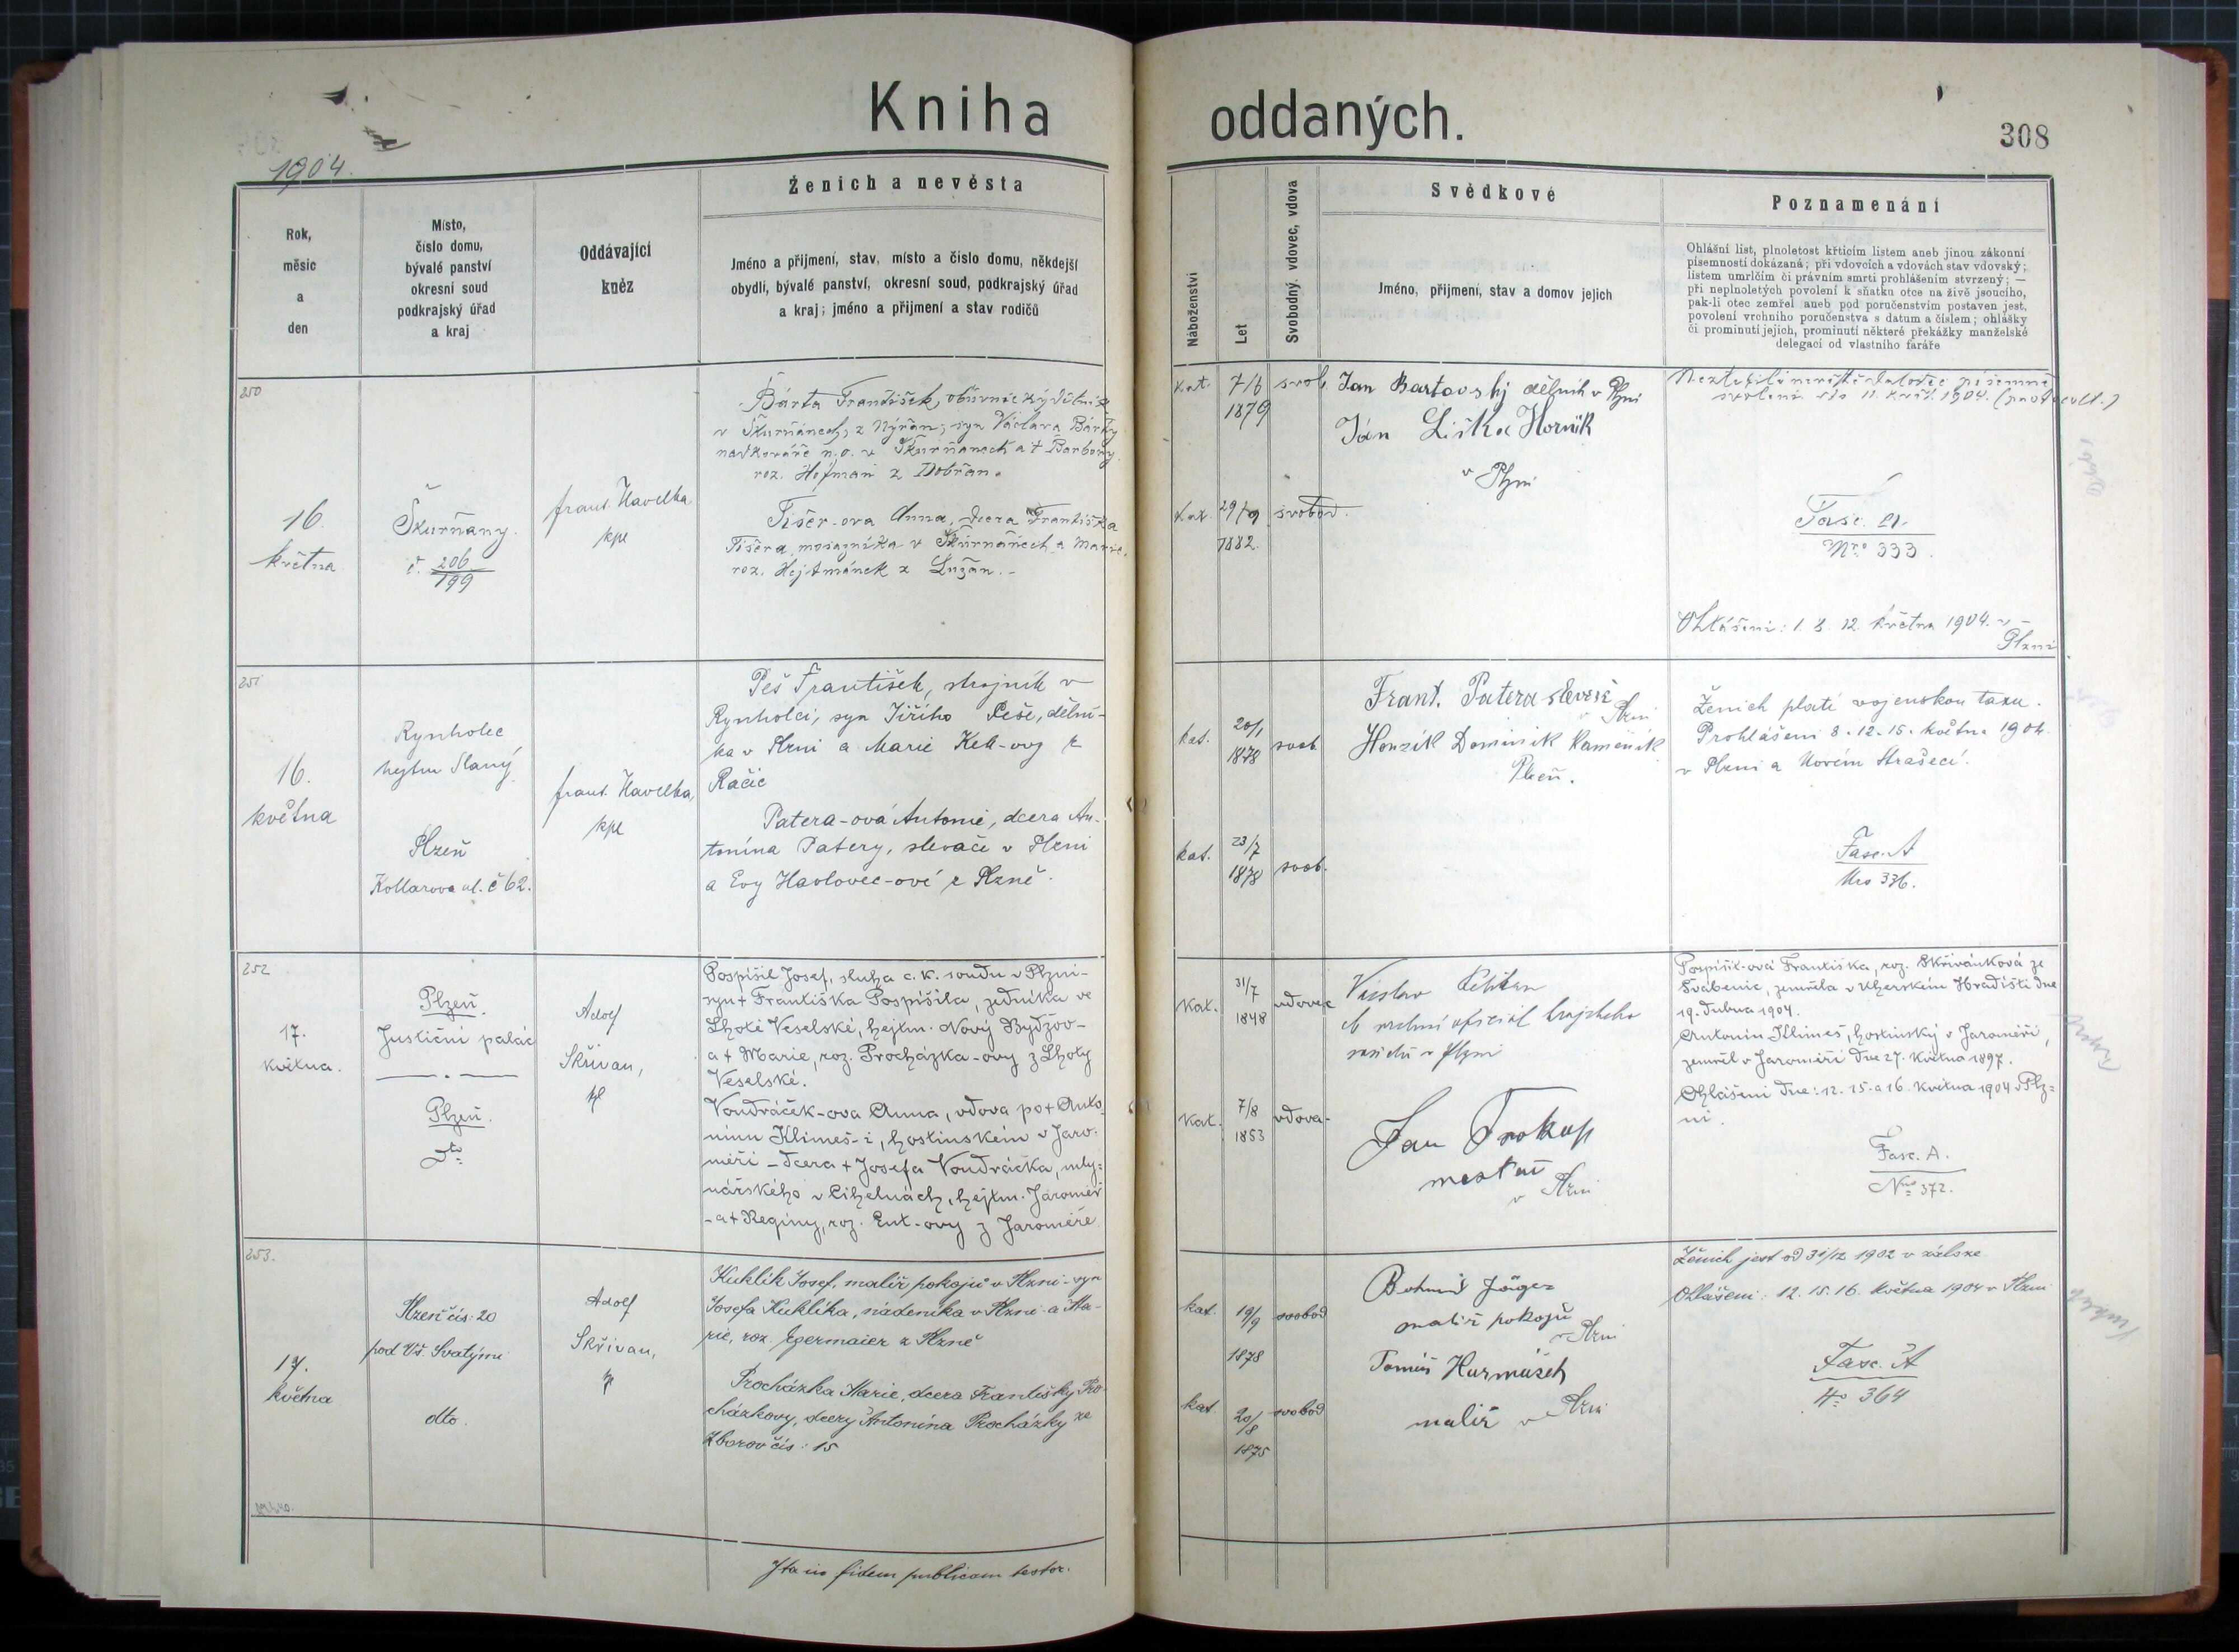 Kniha oddaných.
308
1904.
Rok,
měsíc
a
den
Místo,
číslo domu,
bývalé panství
okresní soud
podkrajský úřad
a kraj
Oddávající
kněz
Ženich a nevěsta
Jméno a příjmení, stav, místo a číslo domu, někdejší
obydlí, bývalé panství, okresní soud, podkrajský úřad
a kraj; jméno a příjmení a stav rodičů
Náboženství
Let
Svobodný, vdovec, vdova
Svědkové
Jméno, příjmení, stav a domov jejich
Poznamenání
Ohlášní list, plnoletost křticím listem aneb jinou zákonní
písemností dokázaná; při vdovcích a vdovách stav vdovský;
listem umrlčím či právním smrti prohlášením stvrzený; —
při neplnoletých povolení k sňatku otce na živě jsoucího,
pak-li otec zemřel aneb pod poručenstvím postaven jest,
povolení vrchního poručenstva s datum a číslem; ohlášky
či prominutí jejich, prominutí některé překážky manželské
delegací od vlastního faráře
250
16.
května
Škurňany.
č. 206
199
frant. Havelka
kpl
Bárta František, obuvnický dělník
v Škurňanech, z Nýřan, syn Václava Bárty
nadkováře n. o. v Škurňanech a † Barbory
roz. Hofman z Dobřan.
Tišer-ova Anna, dcera Františka
Tišera, mosazníka v Škurňanech a Marie,
roz. Hejtmánek z Lužan.-
kat.
7/6
1879
svob.
kat.
29/9
1882.
svobod.
Jan Bartovský dělník v Plzni
Ján Liška Horník
v Plzni
svolení 11. kvě. 1904.
Fasc. A.
Nro 333.
Ohlášení: 1. 8. 12. května 1904. v
Plzni
251
16.
května
Rynholec
hejtm Slaný
Plzeň
Kollarova ul. č 62.
frant. Havelka,
kpl
Peš František, strojník v
Rynholci, syn Jiřího Peše, dělní-
ka v Plzni a Marie z
Račic
Patera-ová Antonie, dcera An-
tonína Patery, slevače v Plzni
a Evy Havlovec-ové z Plzně.
kat.
20/1
1878
svob
kat.
23/7
1878
svob.
Frant. Patera slevač
Plzni
Honzík Dominik Kameník
Plzeň.
Ženich platí vojenskou taxu.
Prohlášení 8. 12. 15. května 1904.
v Plzni a Novém Strašecí.
Fasc. A
Nro 336.
252
17.
května.
Plzeň.
Justiční palác
Plzeň.
dto
Adolf
Skřivan,
kpl
Pospíšil Josef, sluha c. k. soudu v Plzni-
syn † Františka Pospíšila, zedníka ve
Lhotě Veselské, hejtm. Nový Bydžov-
a † Marie, roz. Procházka-ovy z Lhoty
Veselské.
Vondráček-ova Anna, vdova po † Anto-
nínu Klimeš-i, hostinském v Jaro-
měři - dcera † Josefa Vondráčka, mly-
nářského v Cihelnách, hejtm. Jaroměř
- a † Reginy, roz. Ent-ovy z Jaroměře
Kat.
31/7
1848
vdovec
Kat.
7/8
1853
vdova-
oficiál krajského
soudu v Plzni
Jan Prokop
měšťan
v Plzni
Pospíšil-ová Františka, roz. Skřivánková ze
Švábenic, zemřela v Uherském Hradišti dne
19. dubna 1904.
Antonín Klimeš, hostinský v Jaroměři,
zemřel v Jaroměři dne 27. května 1897.
Ohlášení dne: 12. 15. a 16. května 1904 v Plz-
ni.
Fasc. A.
Nro 372.
253.
17.
května
Plzeň čís: 20
pod Vš. Svatými
dto.
Adolf
Skřivan,
kpl
Kuklík Josef, malíř pokojů v Plzni - syn
Josefa Kuklíka, nádeníka v Plzni a Ma-
rie, roz. Egermaier z Plzně
Procházka Marie, dcera Františky Pro-
cházkovy, dcery Antonína Procházky ze
Zborov čís: 15
kat.
19/9
1878
svobod
kat
20/8
1875
svobod
Bohumil Jäger
malíř pokojů
v Plzni
Tomáš
malíř v Plzni
Ženich jest od 31/12 1902 v záloze
Ohlášení: 12. 15. 16. května 1904 v Plzni
Fasc. A
No 364
Ita in fidem publicam testor.